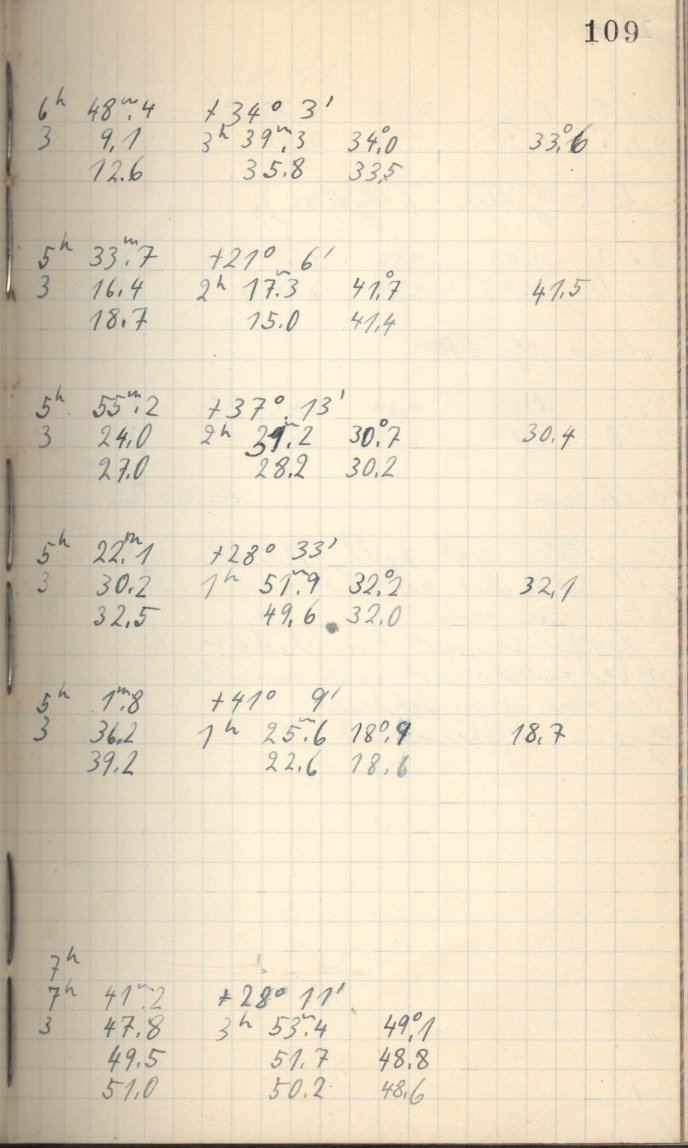 109
6h 48m.4 +34° 3'
3 9.1 3h 39m.3 34°.0 33°.6
12.6 35.8 33.5
5h 33m.7 +21° 6'
3 16.4 2h 17m.3 41°.7 41.5
18.7 15.0 41.4
5h 55m.2 +37° 13'
3 24.0 2h 31m.2 30°.7 30.4
27.0 28.2 30.2
5h 22m.1 +28° 33'
3 30.2 1h 51m.9 32°.2 32.1
32.5 49.6 32.0
5h 1m.8 +41° 9'
3 36.2 1h 25m.6 18°.9 18.7
39.2 22.6 18.6
7h
7h 41m.2 +28° 11'
3 47.8 3h 53m.4 49°.1
49.5 51.7 48.8
51.0 50.2 48.6